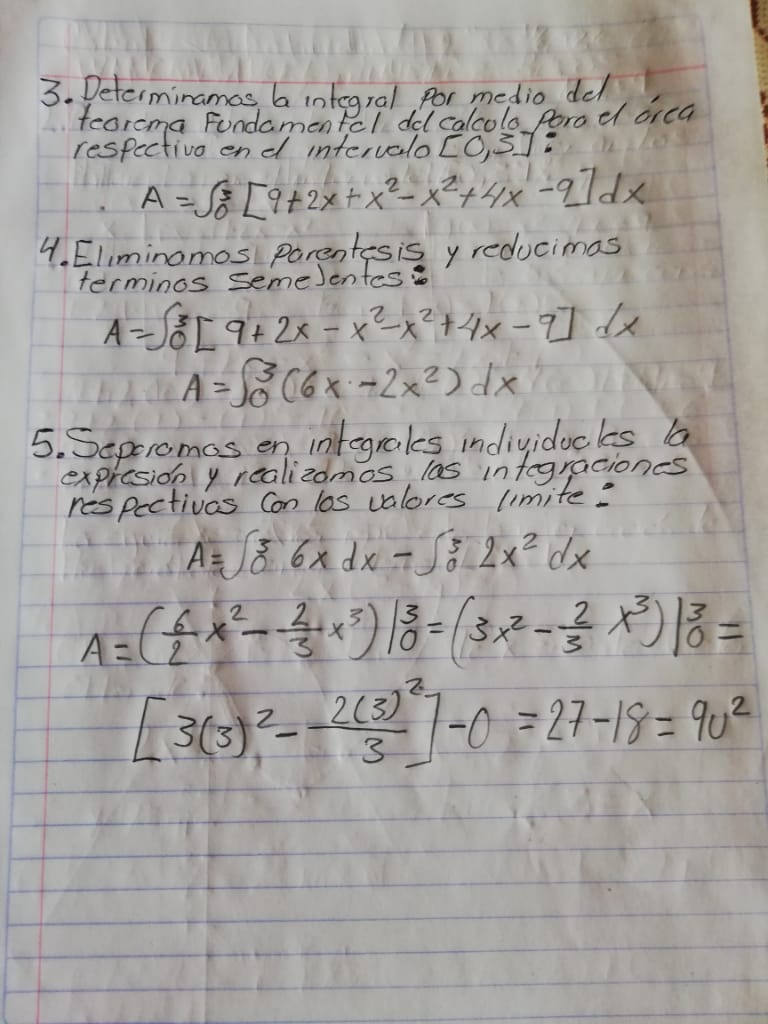 3. Determinamos la integral por medio del
teorema Fundamental del calculo para el área
respectiva en el intervalo [0,3]:
A = ∫₀³ [9+2x+x²-x²+4x-9]dx
4. Eliminamos parentesis y reducimos
terminos semejentes:
A=∫₀³[9+2x-x²-x²+4x-9] dx
A=∫₀³(6x-2x²)dx
5. Separamos en integrales individuales la
expresión y realizamos las integraciones
respectivas con los valores limite:
A=∫₀³ 6x dx - ∫₀³ 2x² dx
A=(6/2 x² - 2/3 x³)|₀³ = (3x² - 2/3 x³)|₀³ =
[3(3)² - 2(3)²/3] - 0 = 27-18 = 9u²